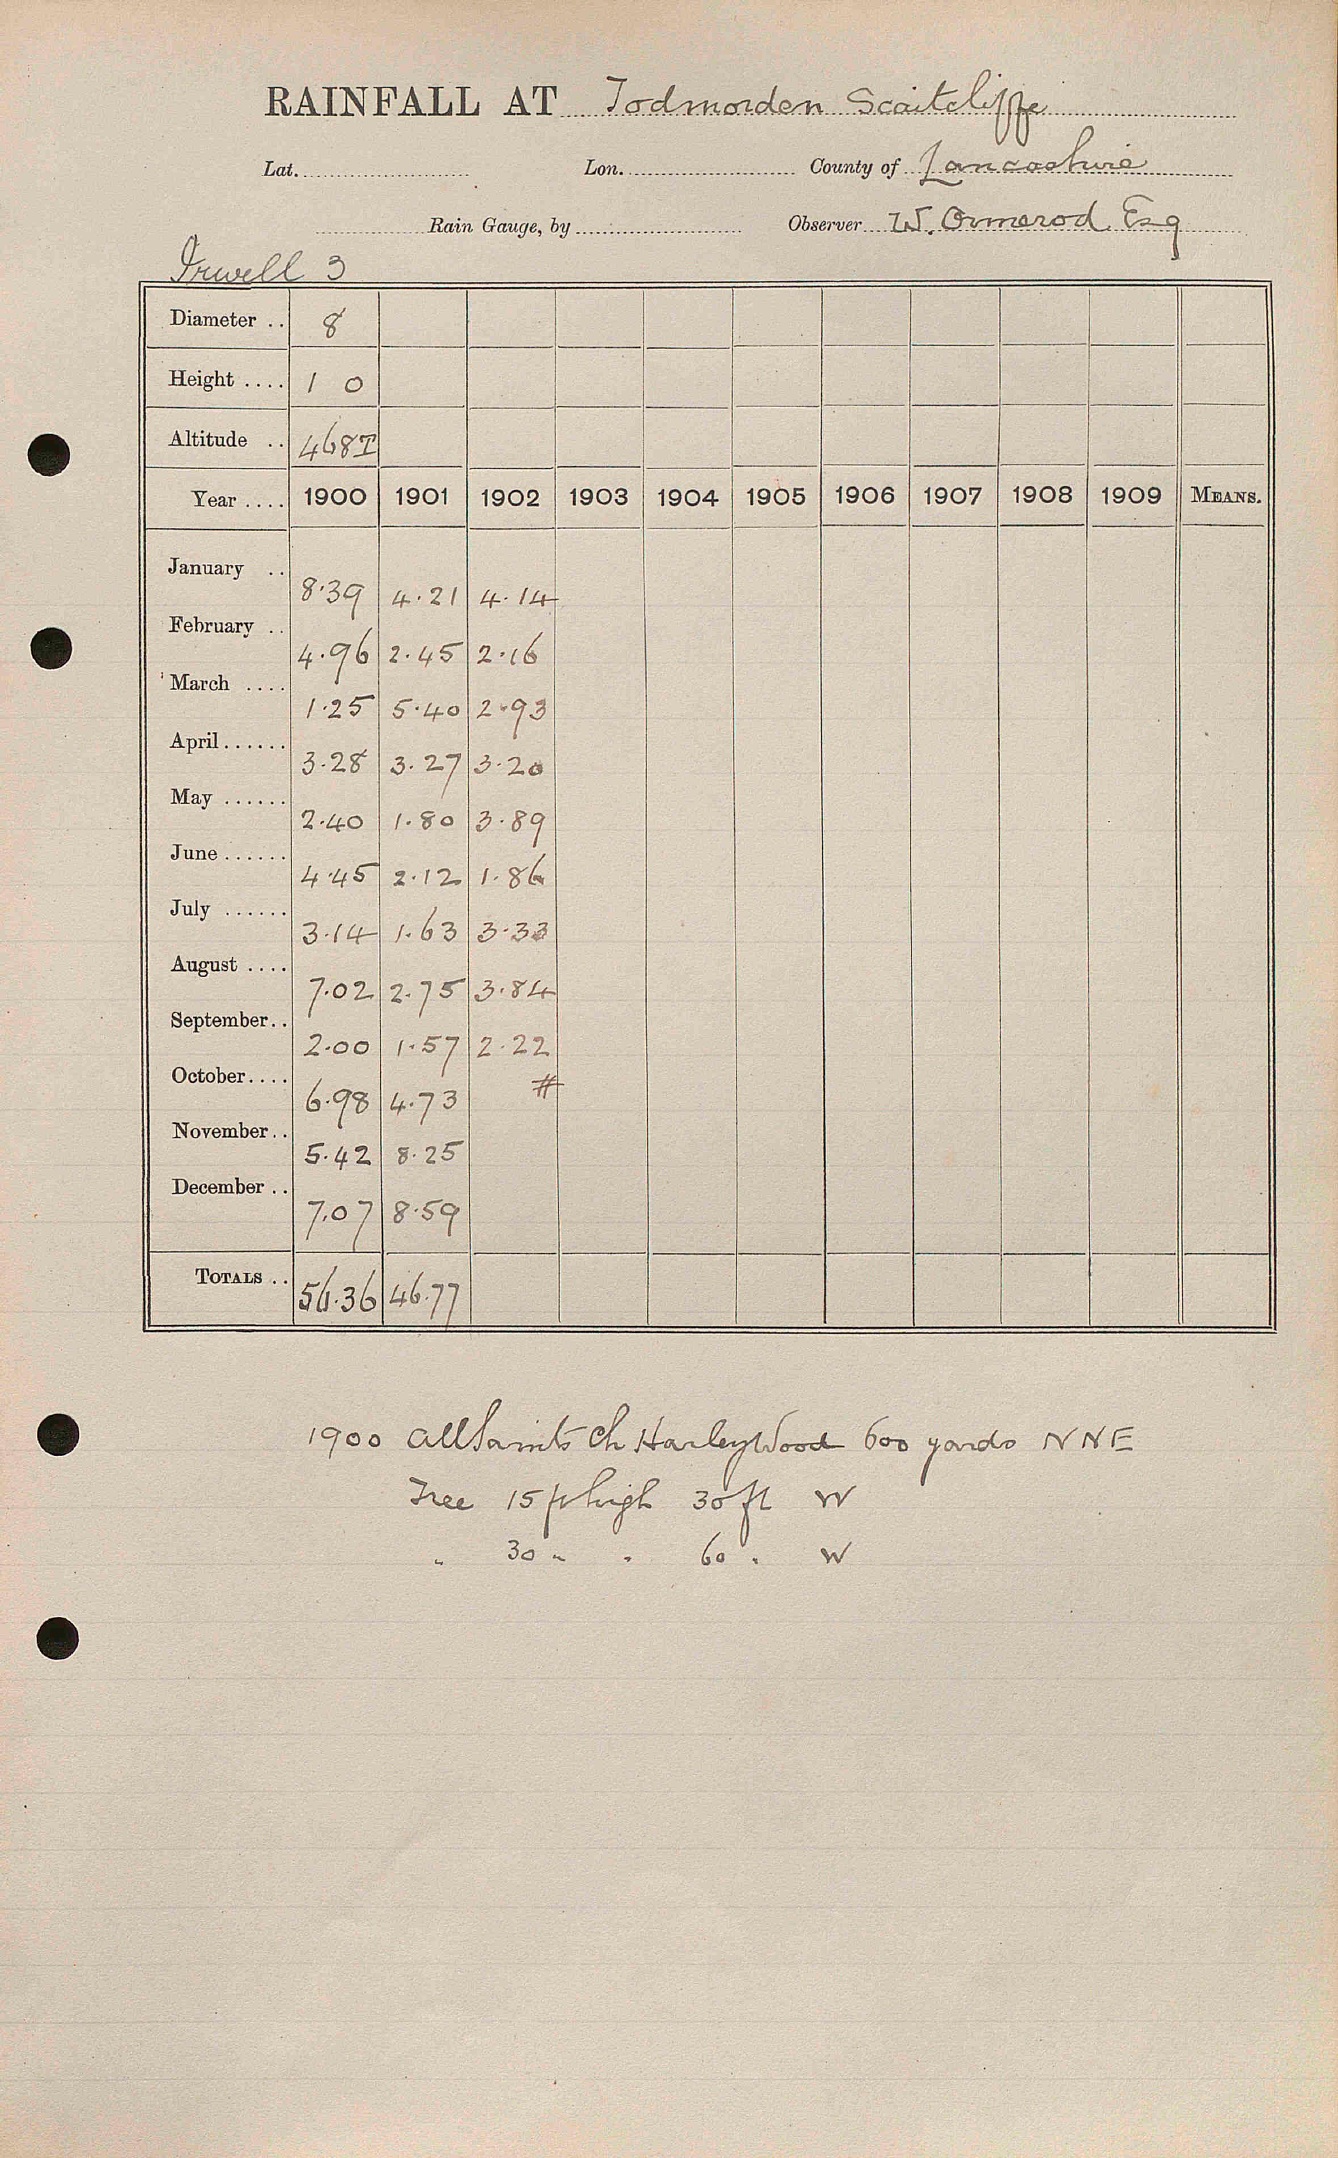 RAINFALL AT Todmorden Scaitcliffe
Lat. Lon. County of Lancashire
Rain Gauge, by Observer W. Ormerod Esq
Irwell 3
Diameter .. 8
Height .... 1 0
Altitude .. 468T
Year .... 1900 1901 1902 1903 1904 1905 1906 1907 1908 1909 MEANS.
January .. 8.39 4.21 4.14
February .. 4.96 2.45 2.16
March .... 1.25 5.40 2.93
April ...... 3.28 3.27 3.20
May ...... 2.40 1.80 3.89
June ...... 4.45 2.12 1.86
July ...... 3.14 1.63 3.33
August .... 7.02 2.75 3.84
September.. 2.00 1.57 2.22
October.... 6.98 4.73 #
November.. 5.42 8.25
December .. 7.07 8.59
TOTALS .. 56.36 46.77
1900 All Saints Ch Harley Wood 600 yards NNE
Tree 15 ft high 30 ft W
" 30 " " 60 " W